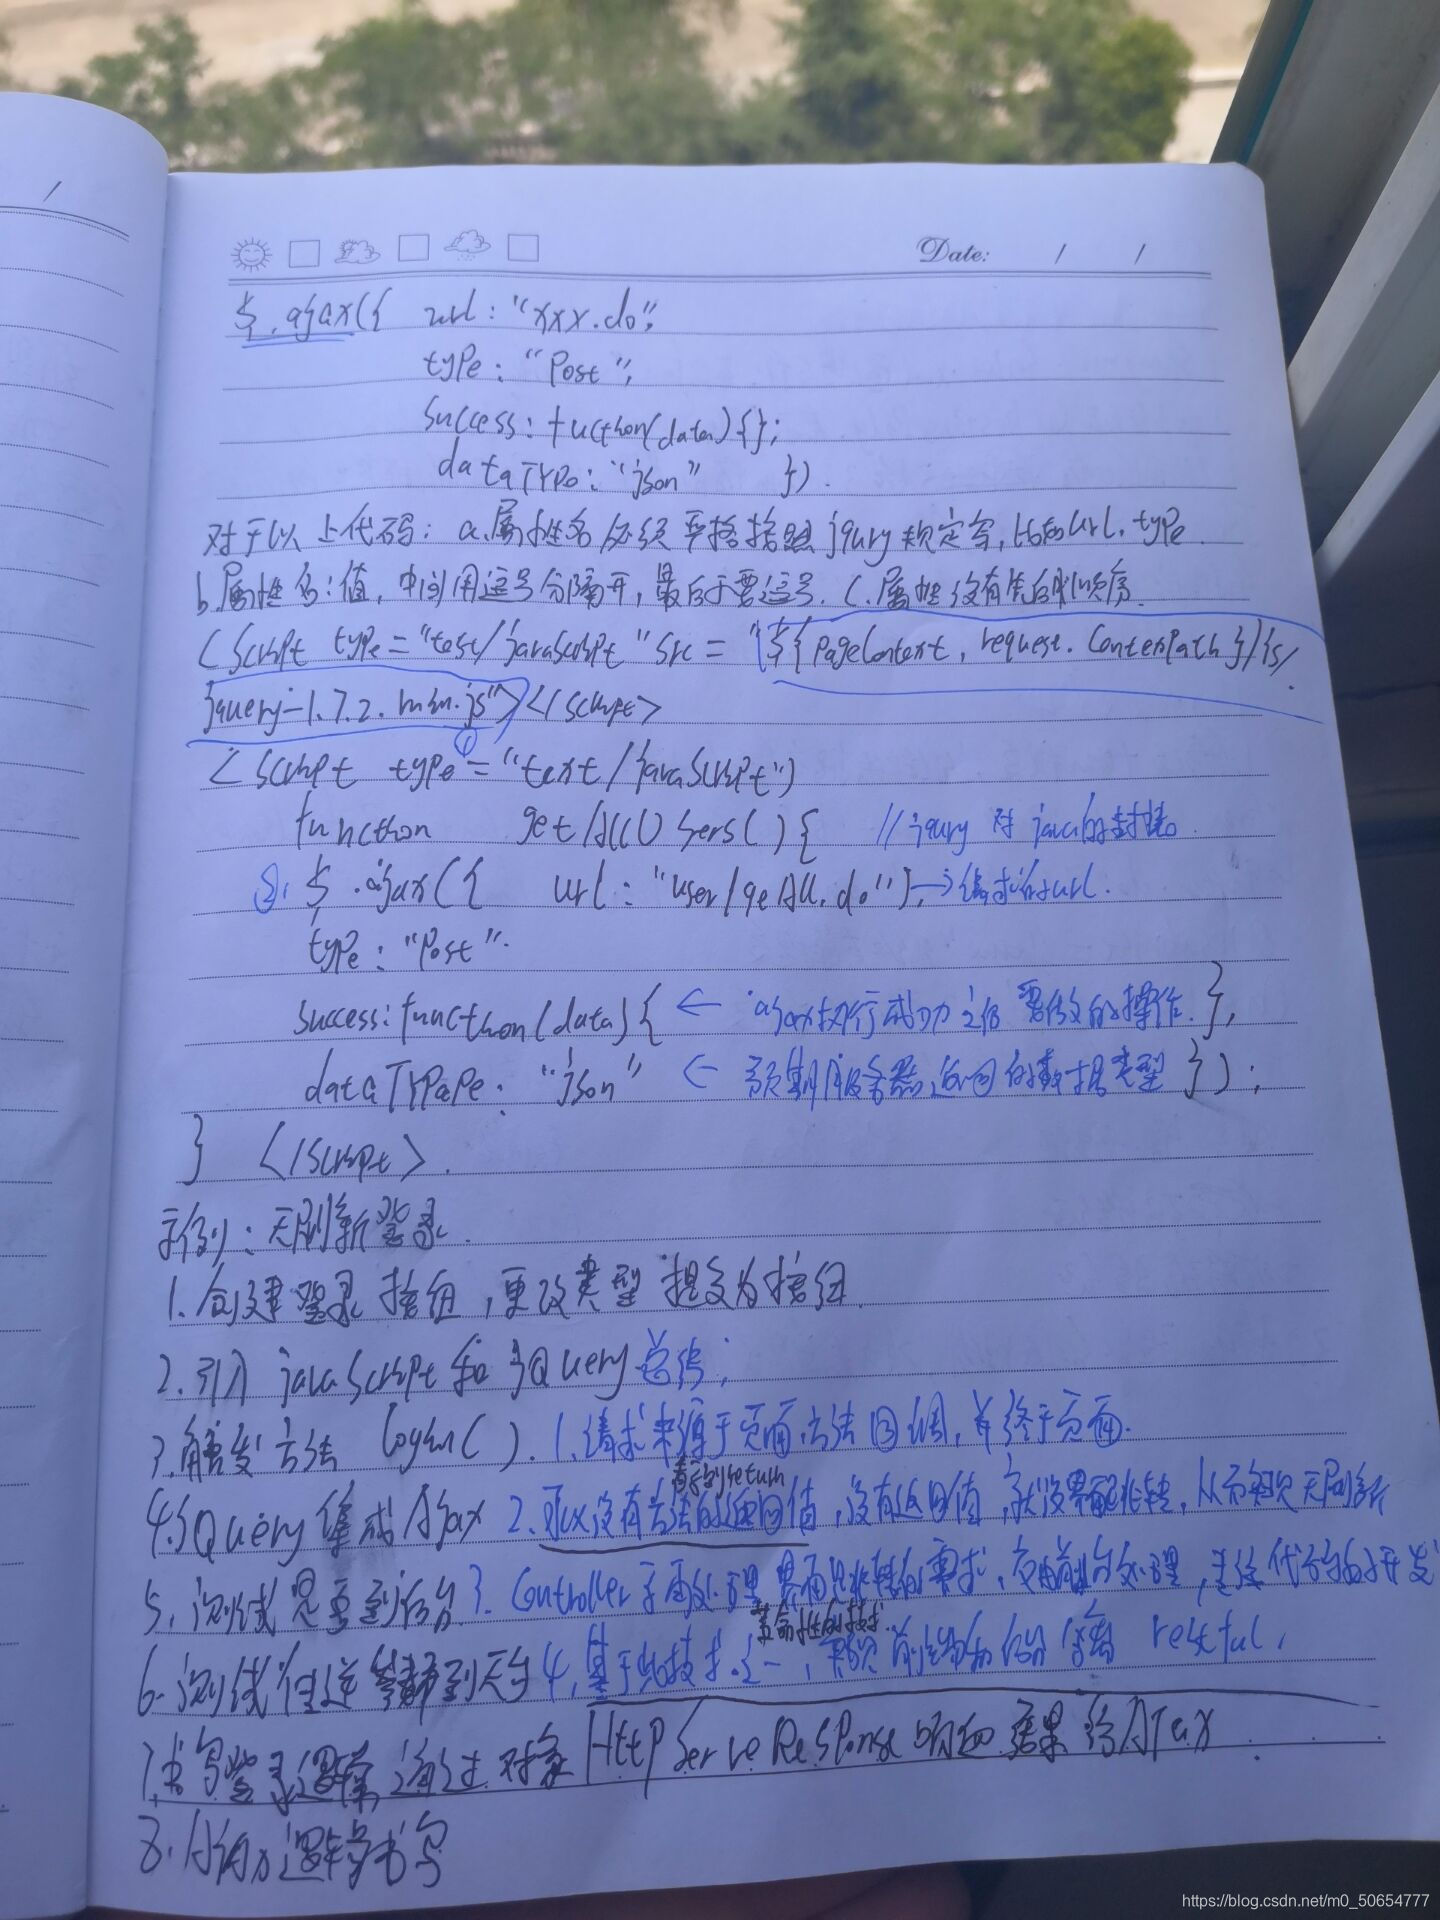 Date: / /
$.ajax({ url: "xxx.do";
type: "Post";
success: fucthon(data){};
dataTYPe: "json" }).
对于以上代码: a.属性名必须严格按照jqury规定写,比如url.type
b.属性名:值,中间用逗号分隔开,最后不要逗号. c.属性没有先后顺序
<script type="test/javascript" src="${pageContext.request.ContextPath}/js/
jquery-1.7.2.min.js"></script>
①
<script type="text/javascript")
function getAllUsers(){ //jqury对java的封装
②. $.ajax({ url:"user/geAll.do"], →请求的url.
type: "Post".
success: function(data){ ← ajax执行成功之后 要做的操作.},
dataTYPaPe: "json" ← 预期服务器返回的数据类型 });
} </script>.
示例: 无刷新登录.
1.创建登录按钮,更改类型 提交为按钮.
2.引入javaScript和jQuery 总结;
3.触发方法 login(). 1.请求来源于页面,方法回调,并终于页面.
看不到return
4.jQuery集成Ajax 2.可以没有方法的返回值,没有返回值,就没界面跳转,从而实现无刷新
5.测试是否到后台 3.Controller不再处理界面跳转的需求,交由前台处理,
革命性的技术.
6.测试 4.基于此技术.之一,实现前后 分离 restful.
7.书写登录逻辑,通过对象HttpServeResponse响应结果给AJax
8.Ajax逻辑书写
https://blog.csdn.net/m0_50654777